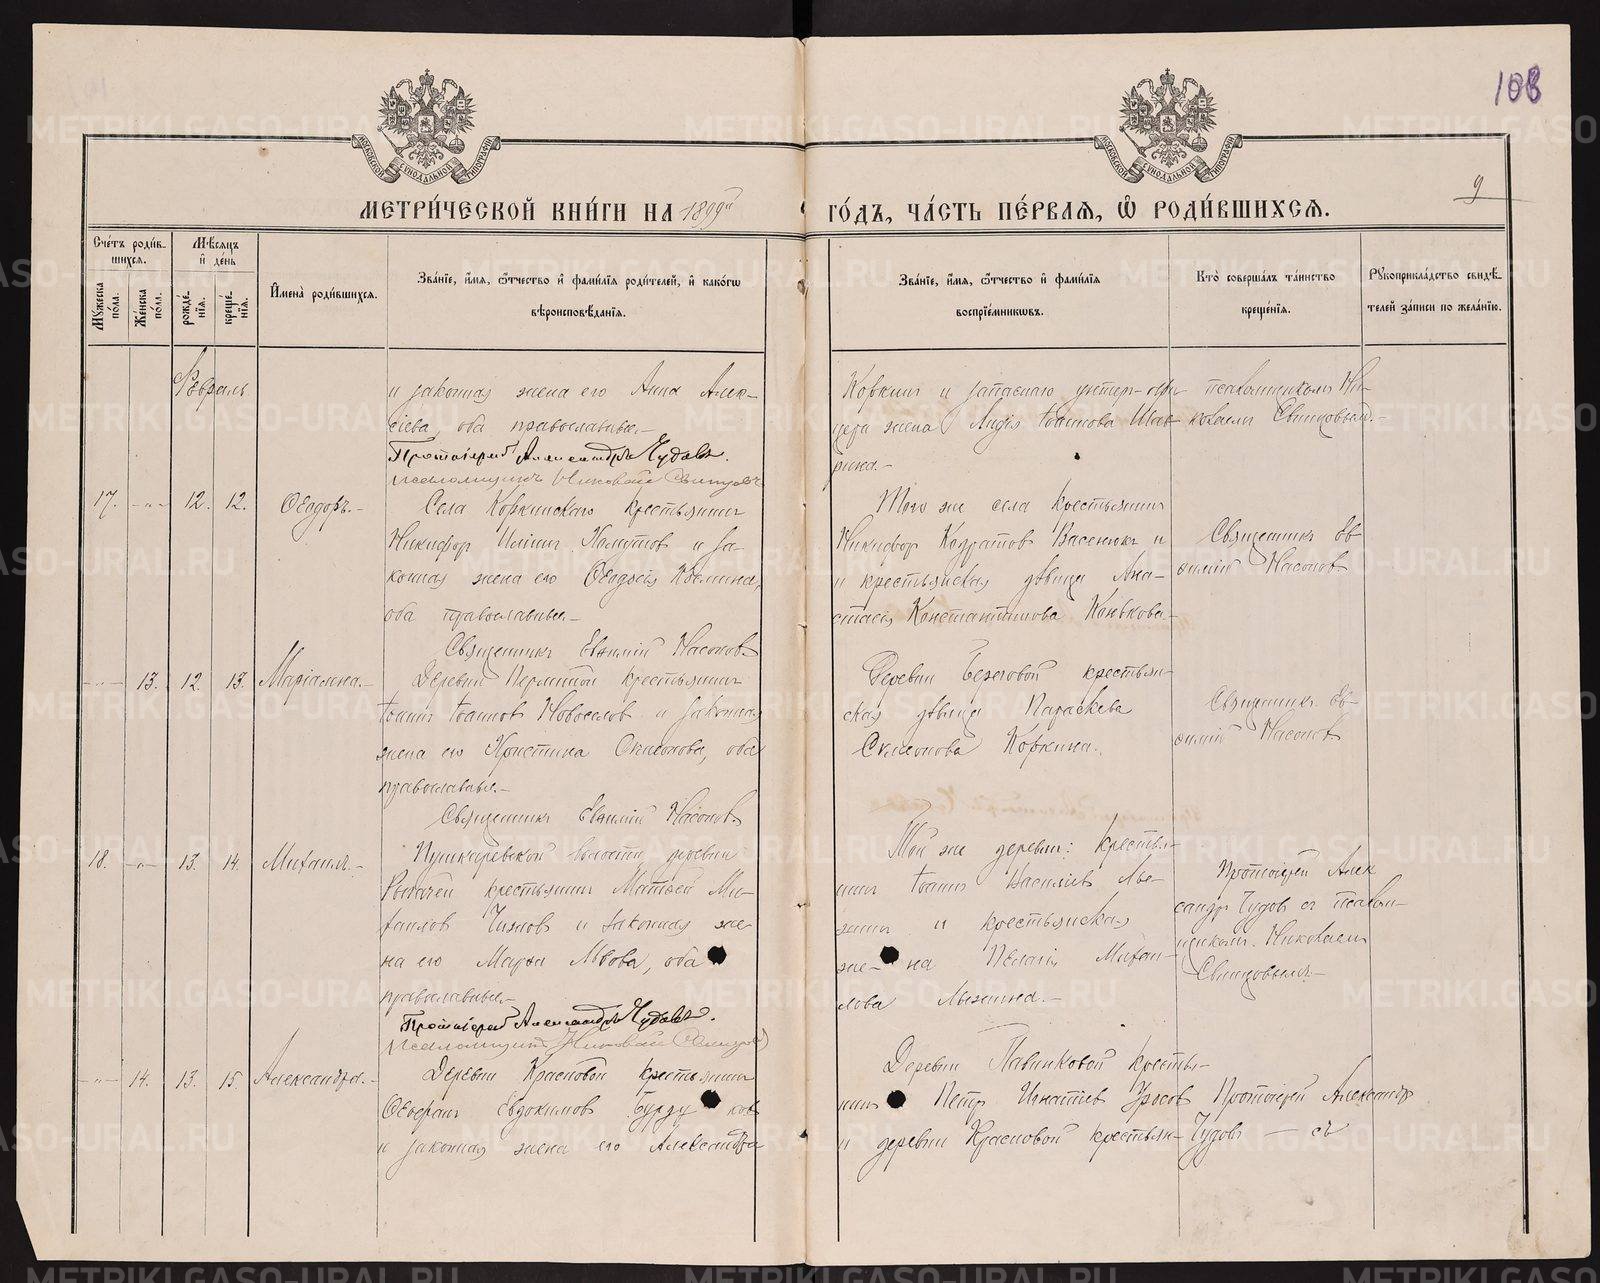 108
9
МОСКОВСКОЙ СѴНОДАЛЬНОЙ ТИПОГРАФІИ
МОСКОВСКОЙ СѴНОДАЛЬНОЙ ТИПОГРАФІИ
МЕТРИ́ЧЕСКОЙ КНИ́ГИ НА 1899й ГО́ДЪ, ЧА́СТЬ ПЕ́РВАѦ, Ѡ҆ РОДИ́ВШИХСѦ.
Сче́тъ роди́вшихсѧ.
Мꙋ́жеска пола.
Же́нска пола.
Мѣ́сѧцъ и҆ де́нь
рожде́нїѧ.
креще́нїѧ.
И҆мена̀ роди́вшихсѧ.
Зва́нїе, и҆́мѧ, ѻ҆́тчество и҆ фами́лїѧ роди́телей, и҆ како́гѡ
вѣроисповѣ́данїѧ.
Зва́нїе, и҆́мѧ, ѻ҆́тчество и҆ фами́лїѧ
воспрїе́мникѡвъ.
Кто̀ соверша́лъ та́инство
креще́нїѧ.
Рꙋкоприкла́дство свидѣ́телей за́писи по жела́нїю.
Февраль
и законная жена его Анна Алек-
сіева, оба православные.-
Протоіерей Александръ Чудовъ.
Псаломщикъ Николай Свинцовъ
Коркинъ и запаснаго унтер-офи-
цера жена Лидія Іоаннова Шав-
рина.-
псаломщикомъ Ни-
колаемъ Свинцовымъ.-
17. -"- 12. 12. Ѳеодоръ.-
Села Коркинскаго крестьянинъ
Никифор Иліин и за-
конная жена его Ѳеодосія
оба православные.-
Священникъ Евѳимій Насонов.
Того же села крестьянин
Никифор Васенюк и
и крестьянская дѣвица Ана-
стасія Константинова Конькова.-
Священник Ев-
ѳимій Насонов
-"- 13. 12. 13. Маріамна.-
Деревни крестьянинъ
Іоаннъ Іоаннов Новоселов и законная
жена его Христина Симеонова, оба
православные.-
Священникъ Евѳимій Насонов.
Деревни Береговой крестьян-
ская дѣвица Параскева
Симеонова Коркина.
Священник Ев-
ѳимій Насонов
18. -"- 13. 14. Михаилъ.-
Пушкаревской волости деревни
крестьянинъ Матѳей Ми-
хаилов и законная же-
на его Марѳа Львова, оба
православные.-
Протоіерей Александръ Чудовъ.
Псаломщик Николай Свинцов
Той же деревни: крестья-
нин Іоанн Василіев
и крестьянская
же-на Пелагія Михаи-
лова
Протоіерей Алек
сандр Чудов съ псалом-
щиком Николаем
Свинцовымъ.-
-"- 14. 13. 15. Александра.-
Деревни Красновой крестьянин
Ѳеофан Евдокимов Бурдуков
и законная жена его Александра
Деревни Павинковой крестья-
нин Петр Игнатіев Уросов
и деревни Красновой крестьян-
Протоіерей Александр
Чудов — съ